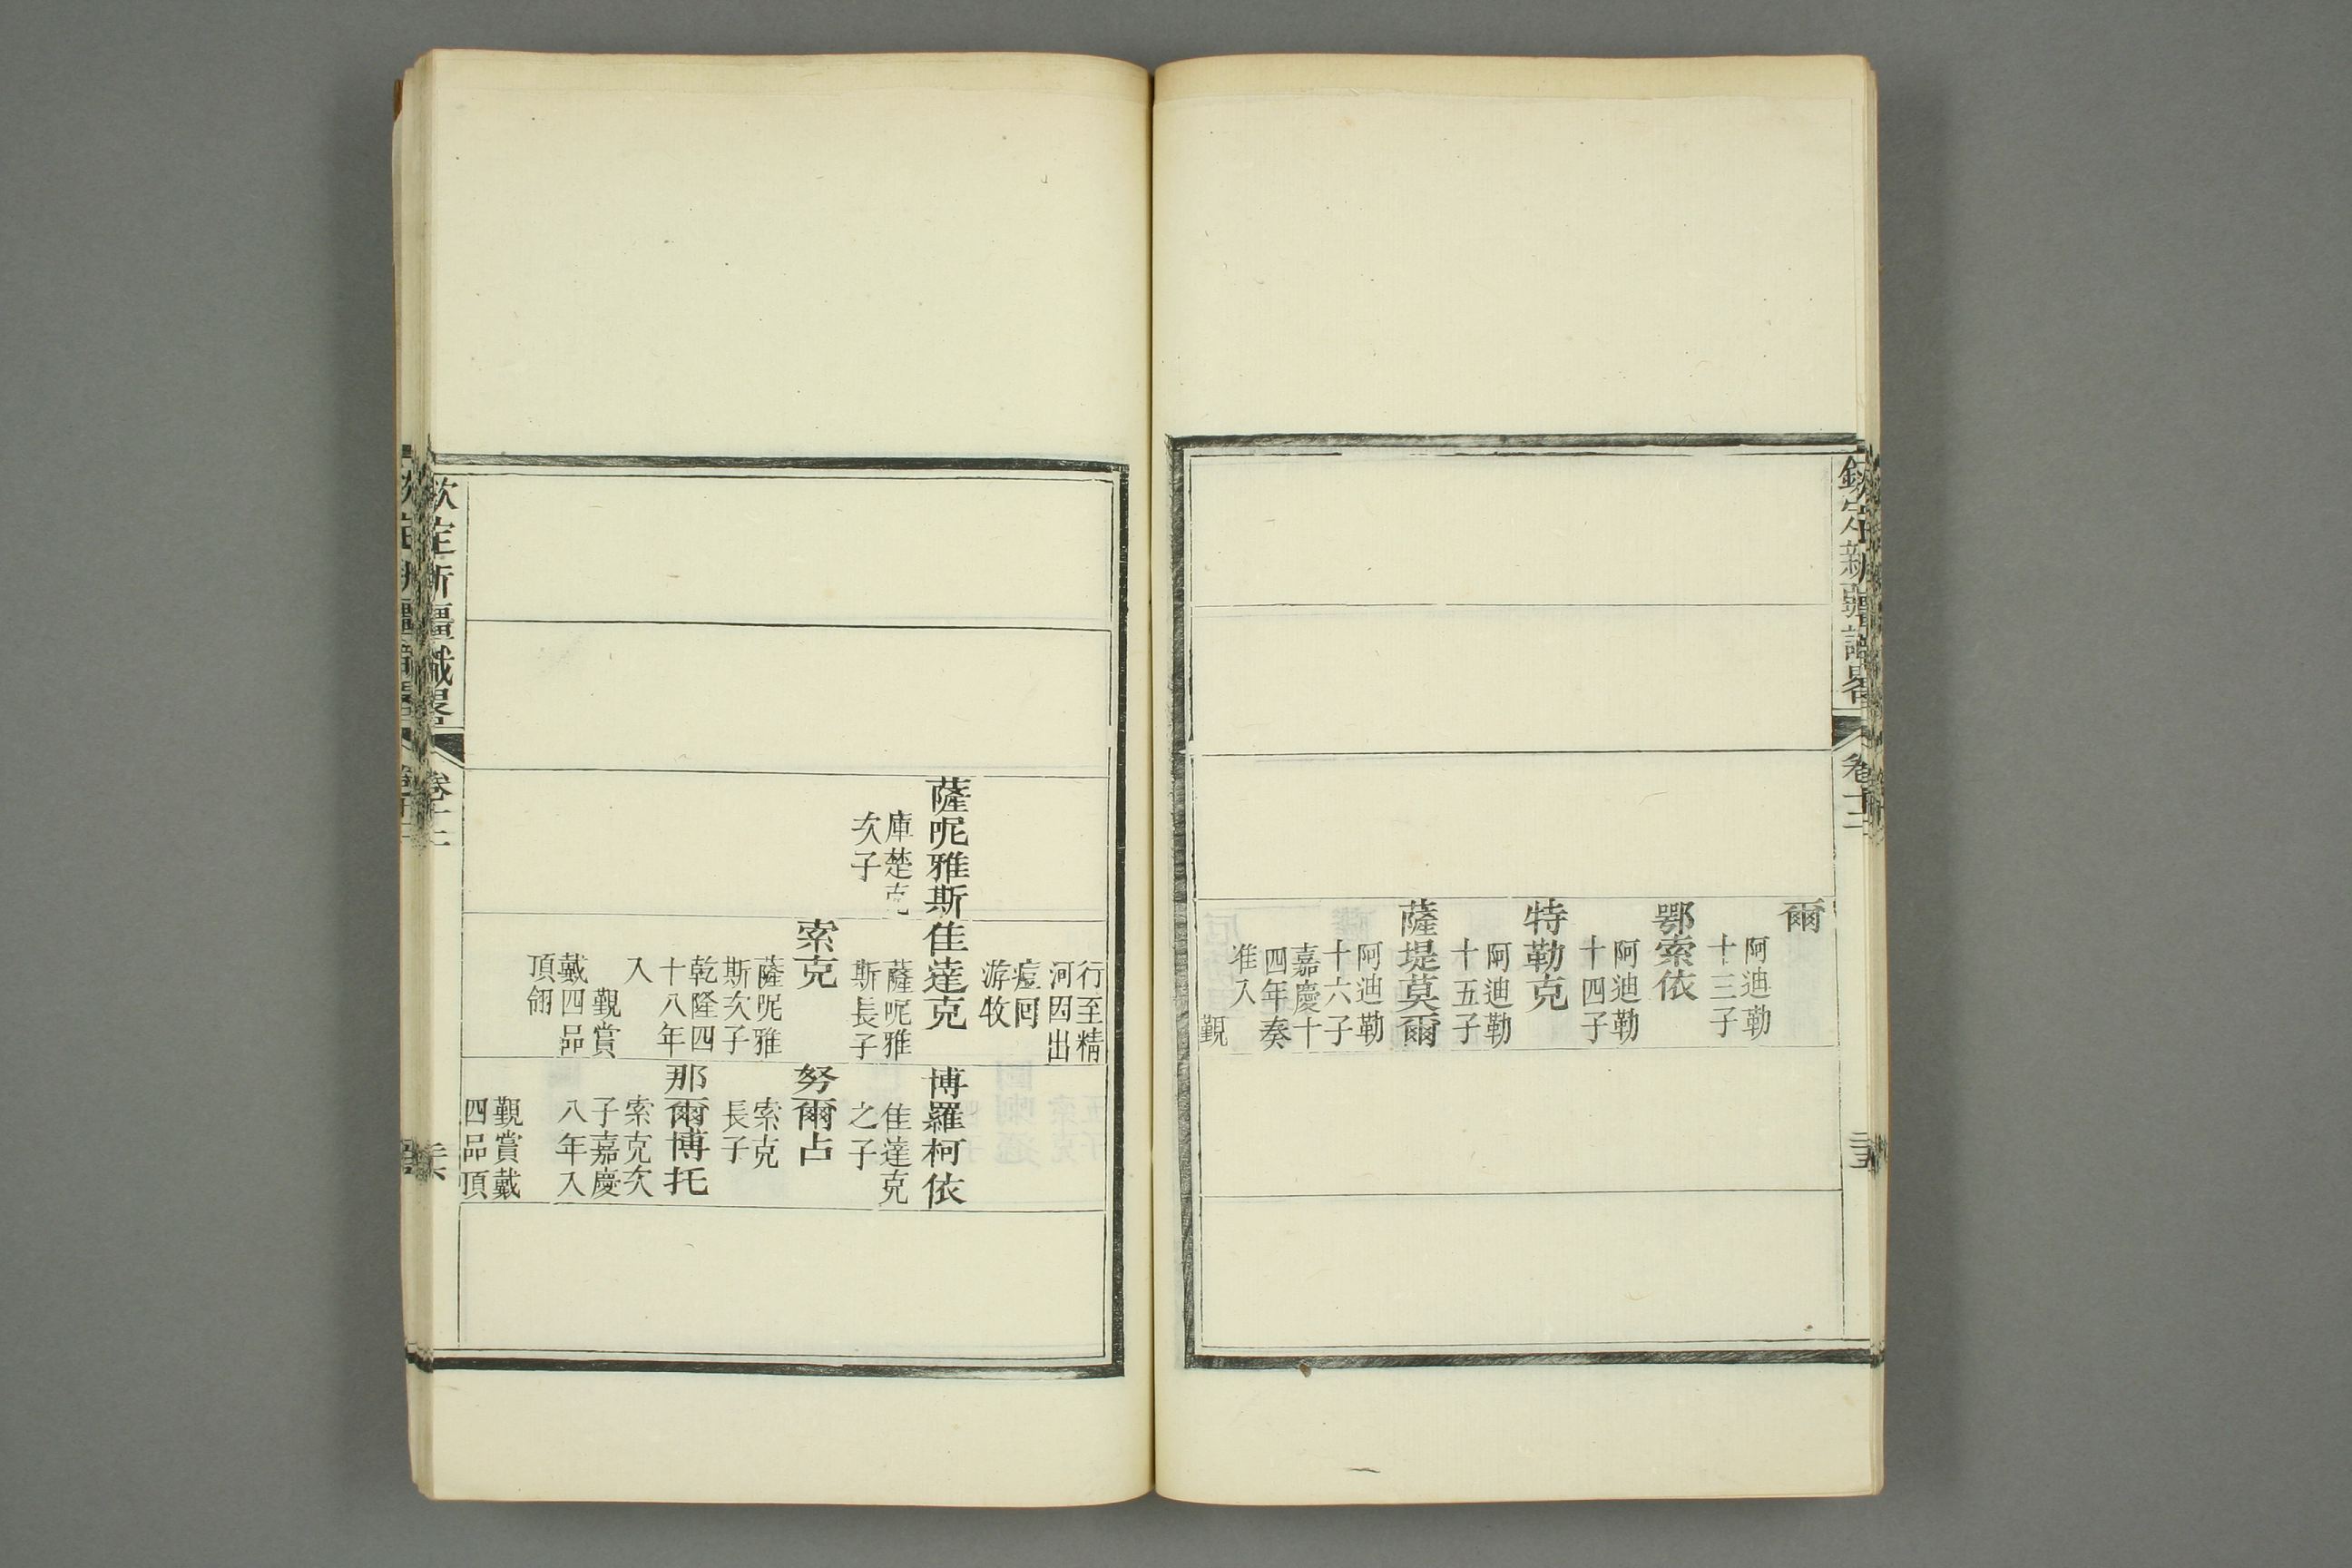 欽定新疆識畧
卷十二
三五
爾
阿迪勒
十三子
鄂索依
阿迪勒
十四子
特勒克
阿迪勒
十五子
薩堤莫爾
阿迪勒
十六子
嘉慶十
四年奏
准入
覲
薩呢雅斯
庫楚克
次子
行至精
河因出
痘囘
游牧
隹達克
薩呢雅
斯長子
索克
薩呢雅
斯次子
乾隆四
十八年
入
覲賞
戴四品
頂翎
博羅柯依
隹達克
之子
努爾占
索克
長子
那爾博托
索克次
子嘉慶
八年入
覲賞戴
四品頂
欽定新疆識畧
卷十二